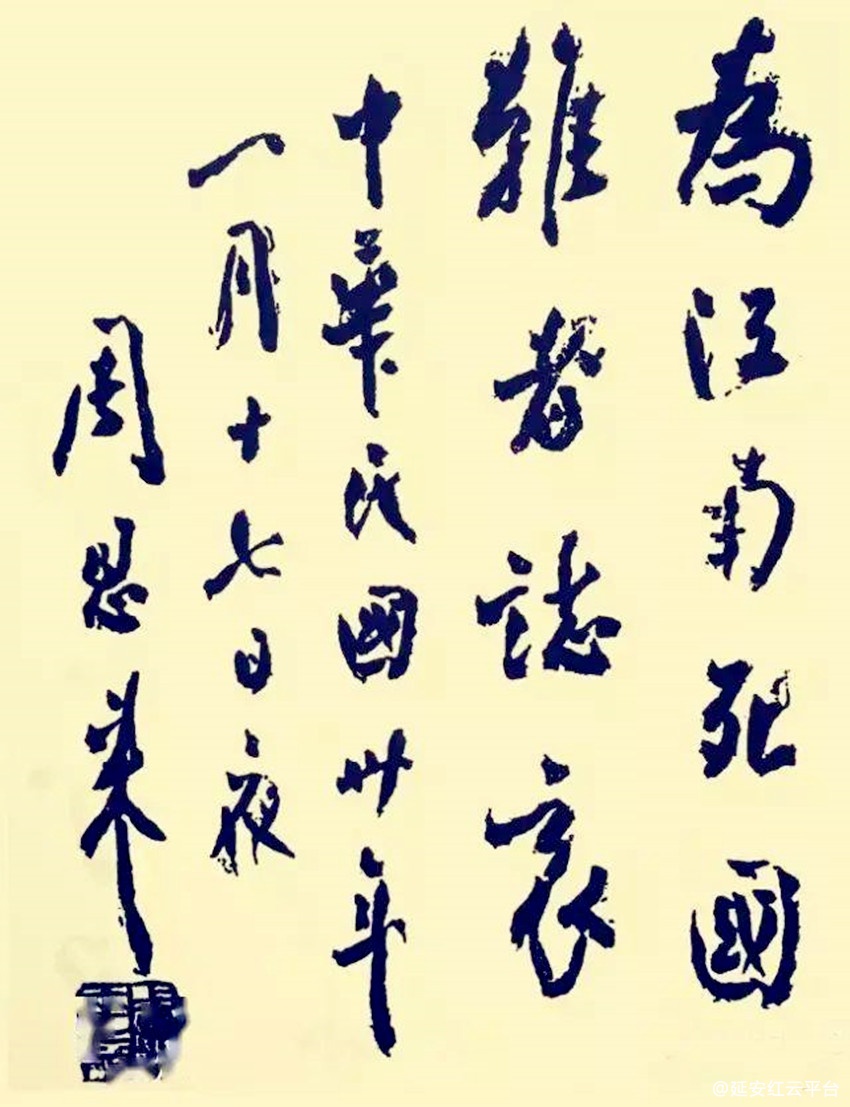 為江南死國
難者誌哀
中華民國卅年
一月十七日夜
周恩來
@延安红云平台